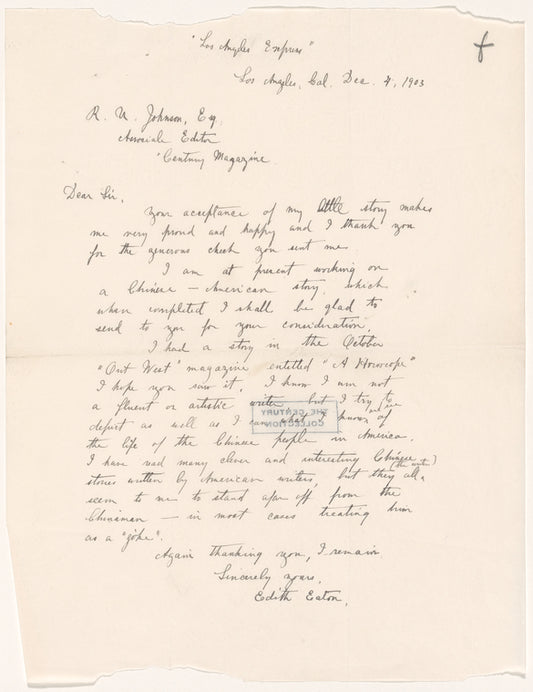 "Los Angeles Express"
f
Los Angeles, Cal. Dec. 4, 1903
R. U. Johnson, Esq.
Associate Editor
"Century Magazine
Dear Sir,
Your acceptance of my little story makes
me very proud and happy and I thank you
for the generous check you sent me.
I am at present working on
a Chinese – American story, which
when completed I shall be glad to
send to you for your consideration.
I had a story in the October
"Out West" magazine entitled "A Horoscope"
I hope you saw it. I know I am not
a fluent or artistic writer but I try to
depict as well as I can what I know and see of
the life of the Chinese people in America.
I have read many clever and interesting Chinese
stories written by American writers, but they all (the writers)
seem to me to stand afar off from the
Chinaman – in most cases treating him
as a "joke".
Again thanking you, I remain
Sincerely yours,
Edith Eaton.
THE CENTURY
COLLECTION